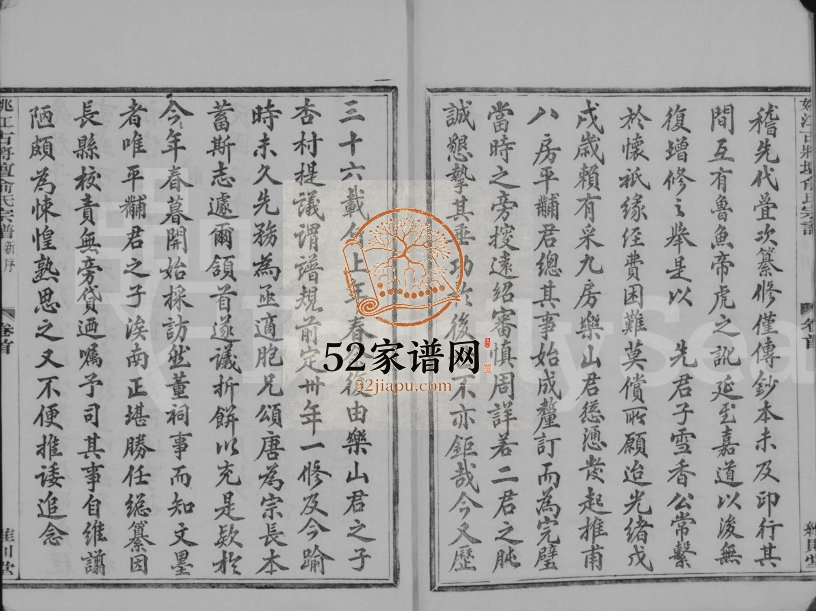 稽先代曾次纂修僅傳鈔本未及印行其
間互有魯魚帝虎之訛延至嘉道以後無
復增修之舉是以 先君子雪香公常繫
於懷祇緣經費困難莫償所願迨光緒戊
戌歲賴有采九房樂山君慫慂發起推南
八房平黼君總其事始成釐訂而為完璧
當時之旁搜遠紹審慎周詳若二君之肫
誠懇摯其垂功於後 不亦鉅哉今又歷
三十六載 上年春 復由樂山君之子
杏村提議謂譜規前定卅年一修及今踰
時未久先務為亟適胞兄頌唐為宗長本
蓄斯志遽爾領首遂議折餅以充是欵於
今年春暮開始採訪然董祠事而知文墨
者唯平黼君之子涘南正堪勝任總纂因
長縣校責無旁貸迺囑予司其事自維謭
陋頗為悚惶熟思之又不便推諉追念
姚江古將壇俞氏宗譜
卷首
姚江古將壇俞氏宗譜 新序
卷首
52家谱网
52jiapu.com